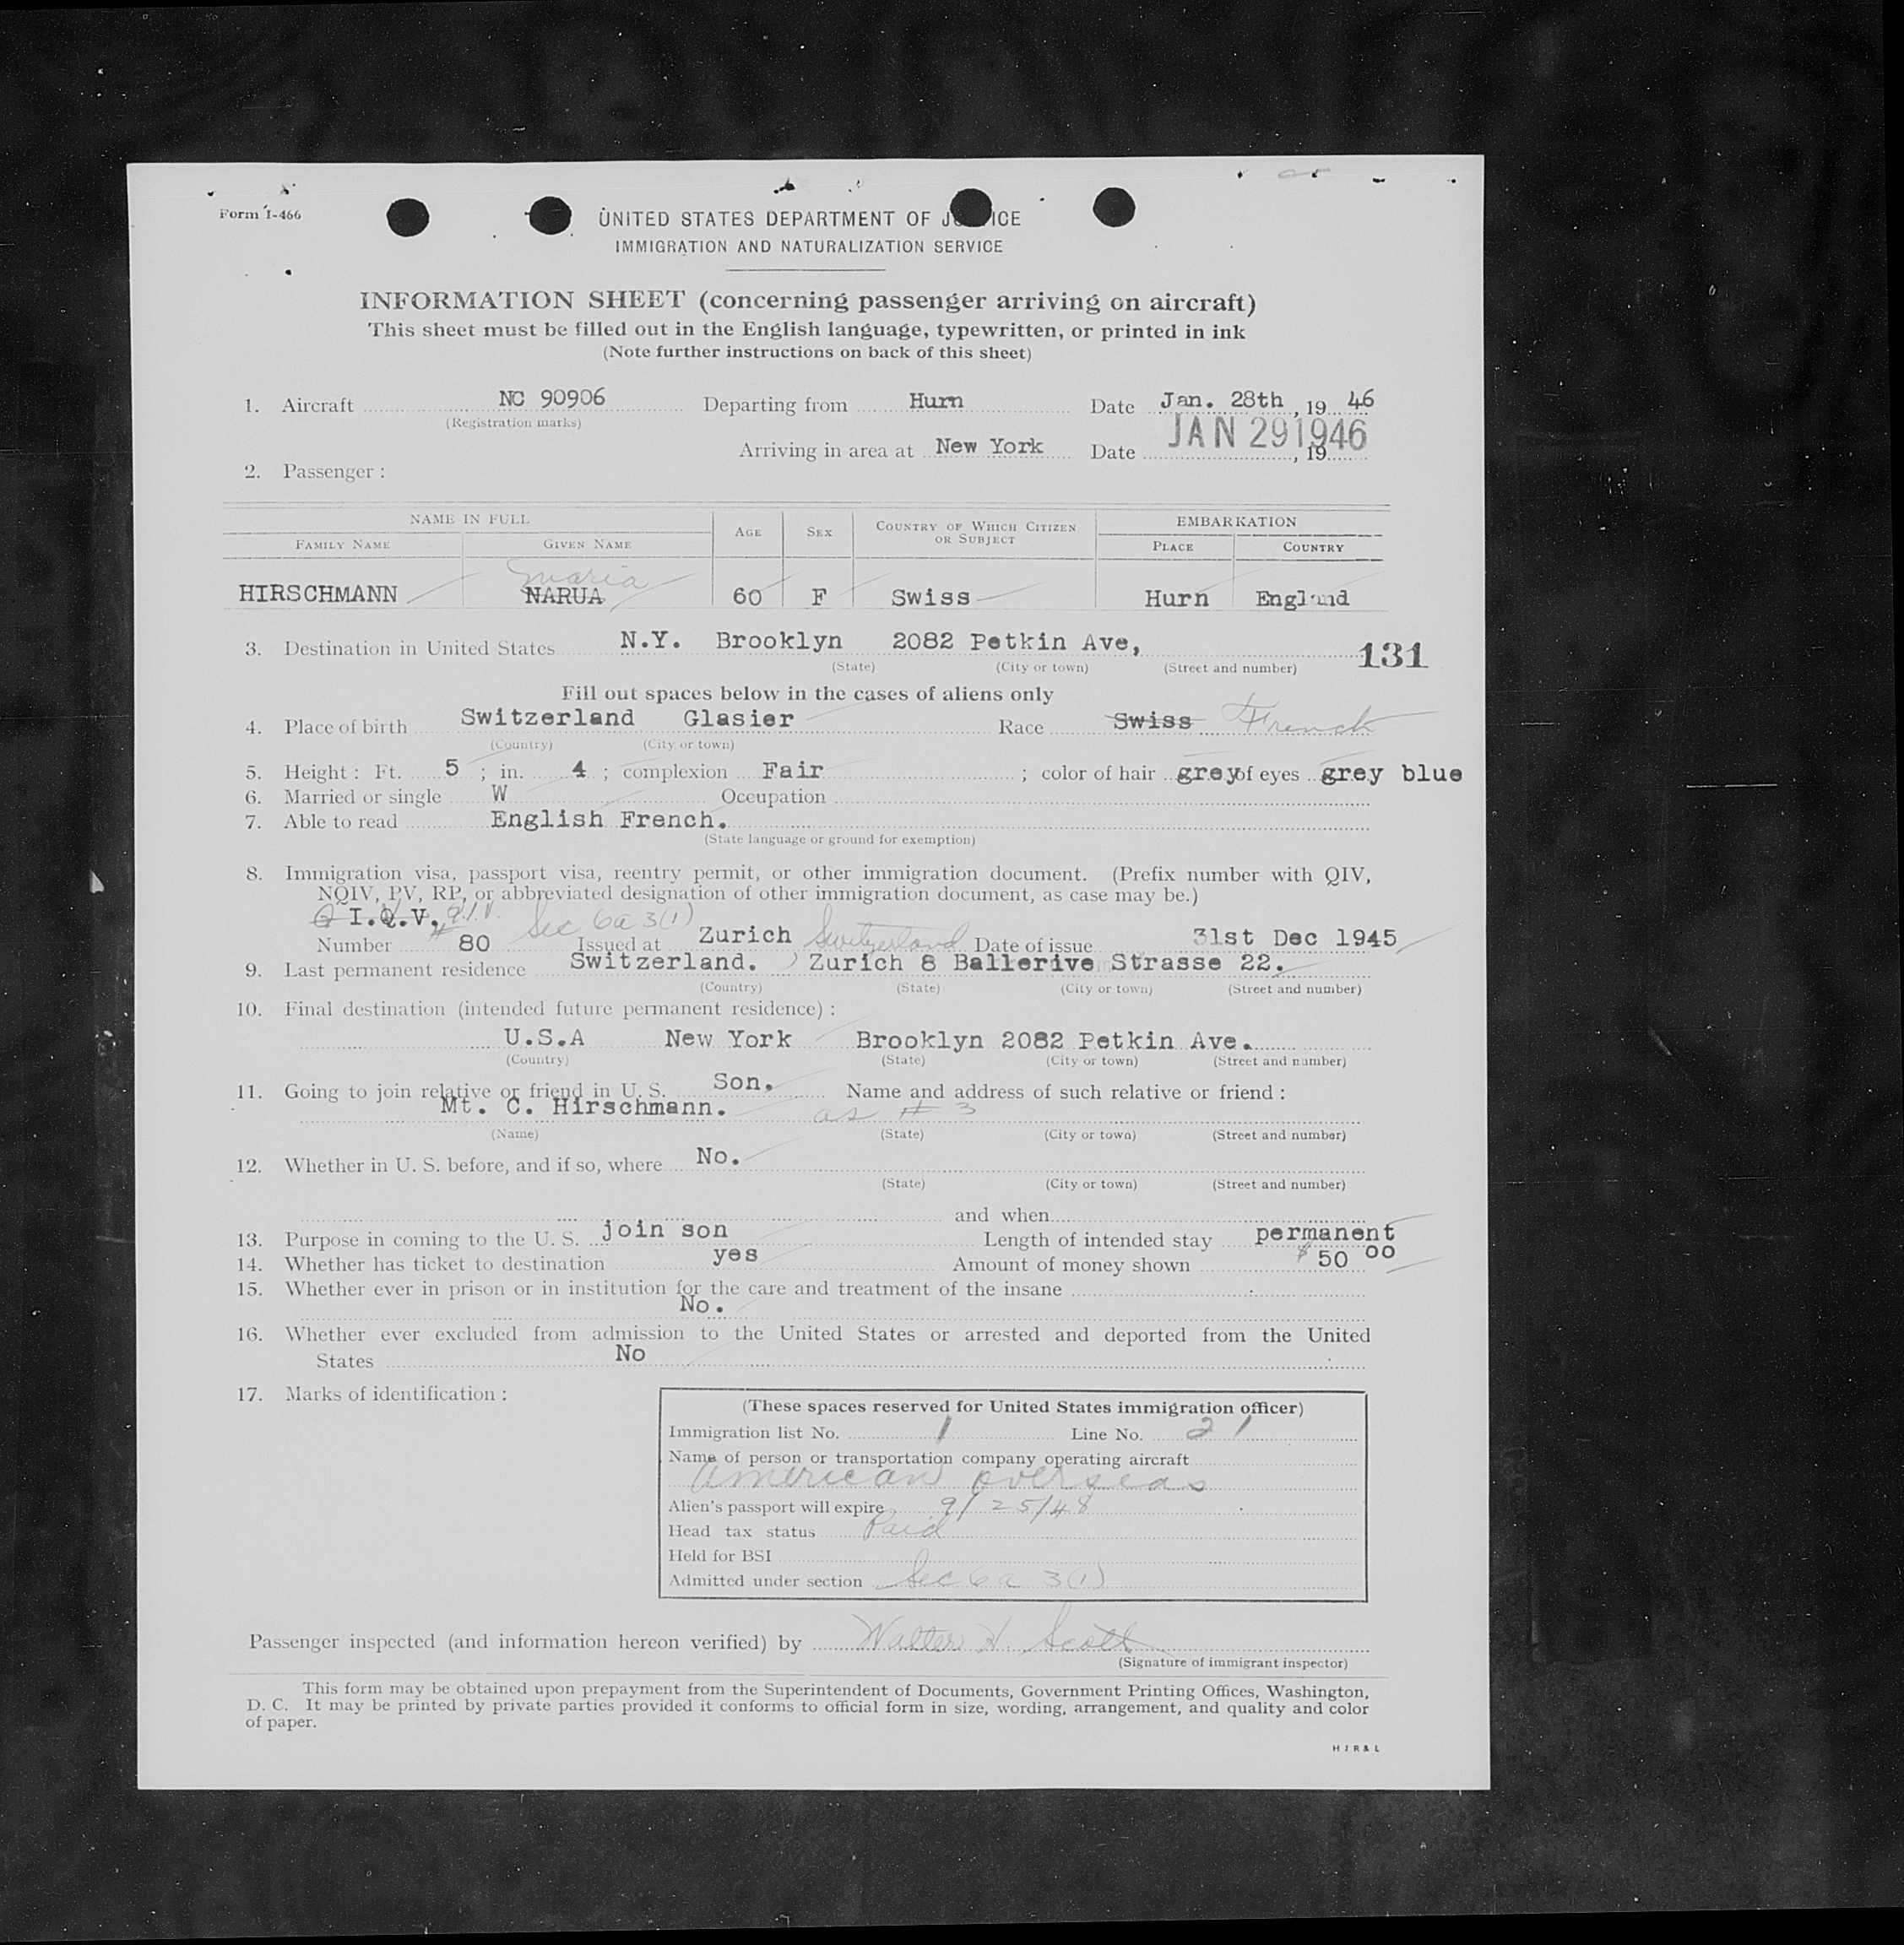 Form I-466
UNITED STATES DEPARTMENT OF JUSTICE
IMMIGRATION AND NATURALIZATION SERVICE
INFORMATION SHEET (concerning passenger arriving on aircraft)
This sheet must be filled out in the English language, typewritten, or printed in ink
(Note further instructions on back of this sheet)
1. Aircraft NC 90906 Departing from Hurn Date Jan. 28th, 19 46
(Registration marks)
Arriving in area at New York Date JAN 29 1946, 19
2. Passenger :
NAME IN FULL AGE SEX COUNTRY OF WHICH CITIZEN OR SUBJECT EMBARKATION
FAMILY NAME GIVEN NAME PLACE COUNTRY
Maria
HIRSCHMANN NARUA 60 F Swiss Hurn England
3. Destination in United States N.Y. Brooklyn 2082 Petkin Ave, 131
(State) (City or town) (Street and number)
Fill out spaces below in the cases of aliens only
4. Place of birth Switzerland Glasier Race Swiss French
(Country) (City or town)
5. Height : Ft. 5 ; in. 4 ; complexion Fair ; color of hair grey of eyes grey blue
6. Married or single W Occupation
7. Able to read English French.
(State language or ground for exemption)
8. Immigration visa, passport visa, reentry permit, or other immigration document. (Prefix number with QIV,
NQIV, PV, RP, or abbreviated designation of other immigration document, as case may be.)
Q I.Q.V. Q.I.V. Sec 6a 3(1)
Number # 80 Issued at Zurich Switzerland Date of issue 31st Dec 1945
9. Last permanent residence Switzerland. Zurich 8 Ballerive Strasse 22.
(Country) (State) (City or town) (Street and number)
10. Final destination (intended future permanent residence) :
U.S.A New York Brooklyn 2082 Petkin Ave.
(Country) (State) (City or town) (Street and number)
11. Going to join relative or friend in U. S. Son. Name and address of such relative or friend :
Mt. C. Hirschmann. as # 3
(Name) (State) (City or town) (Street and number)
12. Whether in U. S. before, and if so, where No.
(State) (City or town) (Street and number)
and when
13. Purpose in coming to the U. S. join son Length of intended stay permanent
14. Whether has ticket to destination yes Amount of money shown $ 50 00
15. Whether ever in prison or in institution for the care and treatment of the insane
No.
16. Whether ever excluded from admission to the United States or arrested and deported from the United
States No
17. Marks of identification :
(These spaces reserved for United States immigration officer)
Immigration list No. 1 Line No. 21
Name of person or transportation company operating aircraft
American overseas
Alien's passport will expire 9/25/48
Head tax status Paid
Held for BSI
Admitted under section Sec 6a 3(1)
Passenger inspected (and information hereon verified) by Walter H. Scott
(Signature of immigrant inspector)
This form may be obtained upon prepayment from the Superintendent of Documents, Government Printing Offices, Washington,
D. C. It may be printed by private parties provided it conforms to official form in size, wording, arrangement, and quality and color
of paper.
H J R & L